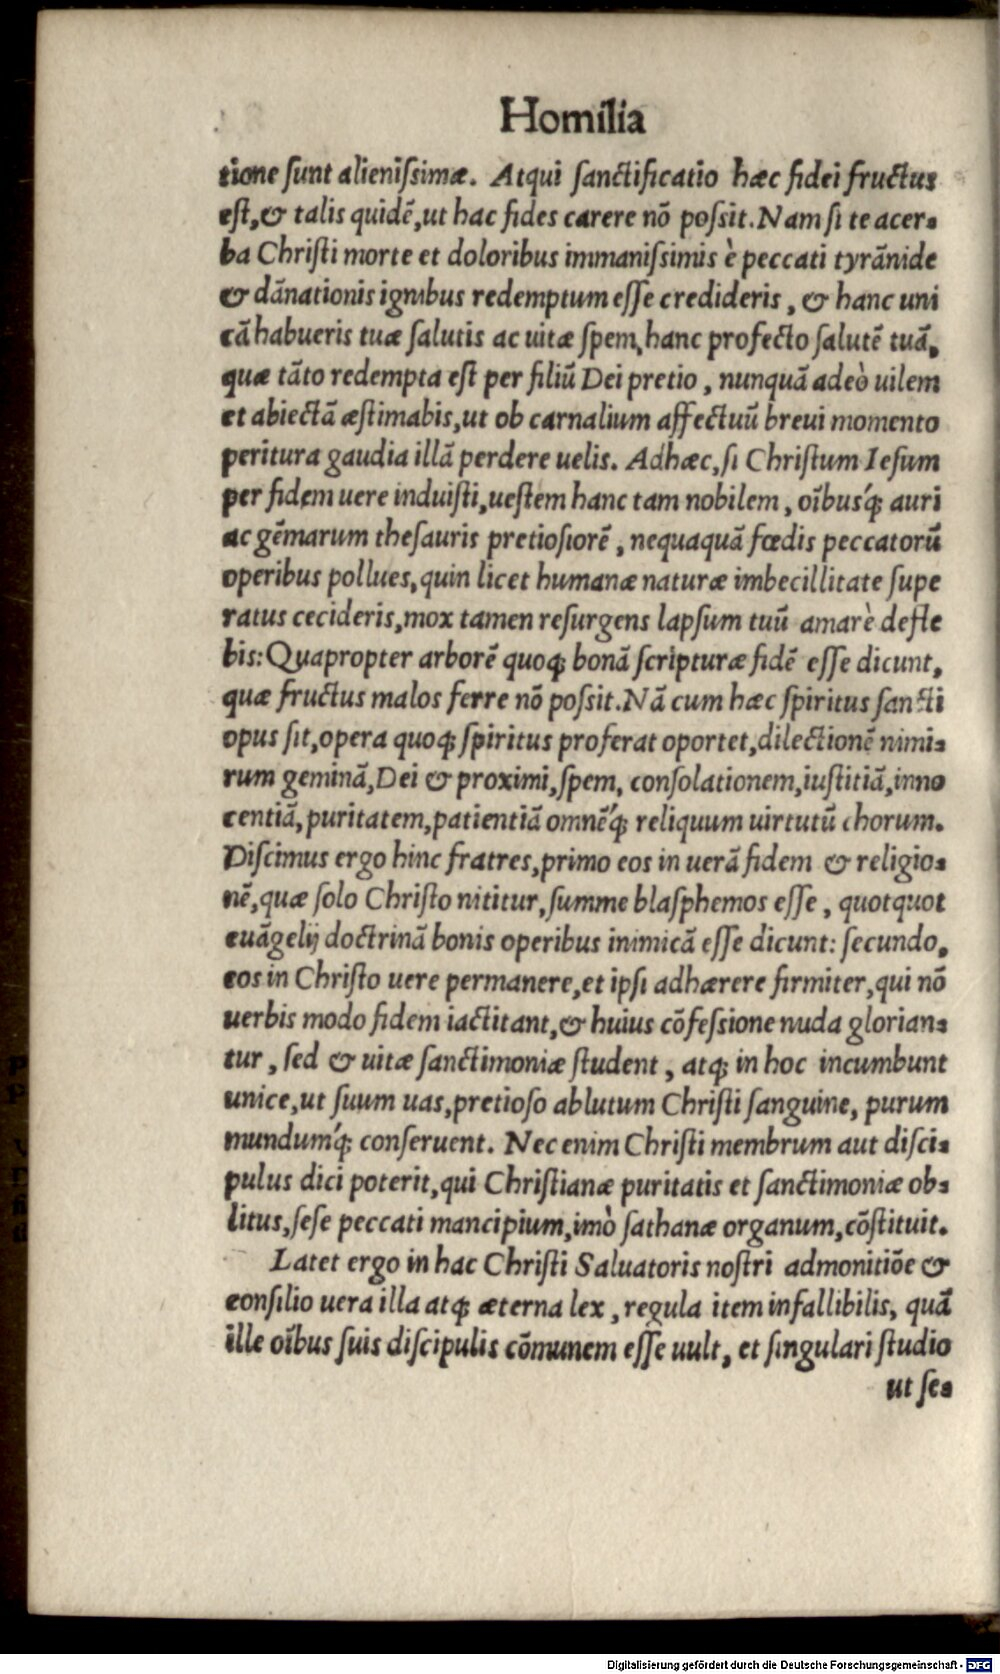 Homilia
tione ſunt alieniſsimæ. Atqui ſanctificatio hæc fidei fructus
eſt,& talis quidē,ut hac fides carere nō poſsit. Nam ſi te acer⸗
ba Chriſti morte et doloribus immaniſsimis è peccati tyrānide
& dānationis ignibus redemptum eſſe credideris, & hanc uni
cā habueris tuæ ſalutis ac uitæ ſpem, hanc profecto ſalutē tuā,
quæ tāto redempta eſt per filiū Dei pretio, nunquā adeò uilem
et abiectā æſtimabis,ut ob carnalium affectuū breui momento
peritura gaudia illā perdere uelis. Adhæc,ſi Chriſtum Ieſum
per fidem uere induiſti,ueſtem hanc tam nobilem, oībusq́ꝫ auri
ac gēmarum theſauris pretioſiorē, nequaquā fœdis peccatorū
operibus pollues,quin licet humanæ naturæ imbecillitate ſupe
ratus cecideris,mox tamen reſurgens lapſum tuū amarè defle
bis: Quapropter arborē quoqꝫ bonā ſcripturæ fidē eſſe dicunt,
quæ fructus malos ferre nō poſsit. Nā cum hæc ſpiritus ſancti
opus ſit,opera quoqꝫ ſpiritus proferat oportet,dilectionē nimi⸗
rum geminā,Dei & proximi,ſpem, conſolationem,iuſtitiā,inno
centiā,puritatem,patientiā omnēq́ꝫ reliquum uirtutū chorum.
Diſcimus ergo hinc fratres,primo eos in uerā fidem & religio⸗
nē,quæ ſolo Chriſto nititur,ſumme blaſphemos eſſe, quotquot
euāgelij doctrinā bonis operibus inimicā eſſe dicunt: ſecundo,
eos in Chriſto uere permanere,et ipſi adhærere firmiter,qui nō
uerbis modo fidem iactitant,& huius cōfeſsione nuda glorian⸗
tur, ſed & uitæ ſanctimoniæ ſtudent, atqꝫ in hoc incumbunt
unice,ut ſuum uas,pretioſo ablutum Chriſti ſanguine, purum
mundumq́ꝫ conſeruent. Nec enim Chriſti membrum aut diſci⸗
pulus dici poterit,qui Chriſtianæ puritatis et ſanctimoniæ ob⸗
litus,ſeſe peccati mancipium,imò ſathanæ organum,cōſtituit.
Latet ergo in hac Chriſti Saluatoris noſtri admonitiōe &
conſilio uera illa atqꝫ æterna lex, regula item infallibilis, quā
ille oībus ſuis diſcipulis cōmunem eſſe uult, et ſingulari ſtudio
ut ſe⸗
Digitalisierung gefördert durch die Deutsche Forschungsgemeinschaft - DFG